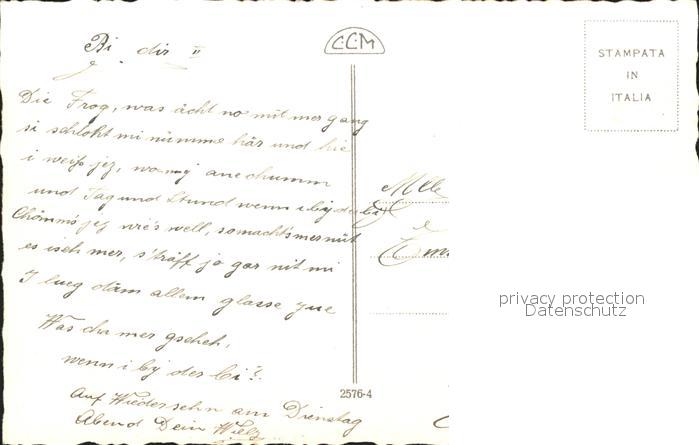 Bi dir II
Die Frog, was ächt no mit mer gang
si schloht mi nümme här und hie
i weiß jez, wo-n-i ane chumm
und Tag und Stund wenn i by der bi
Chömm's jez wie's well, so macht's mer nüt
es isch mer, s'träff jo gar nit mi
I lueg däm allem glasse zue
Was du mer gscheh,
wenn i by der bi?
Auf Wiedersehn am Dienstag
Abend Dein Willy
C.C.M
STAMPATA
IN
ITALIA
Mlle
2576-4
privacy protection
Datenschutz